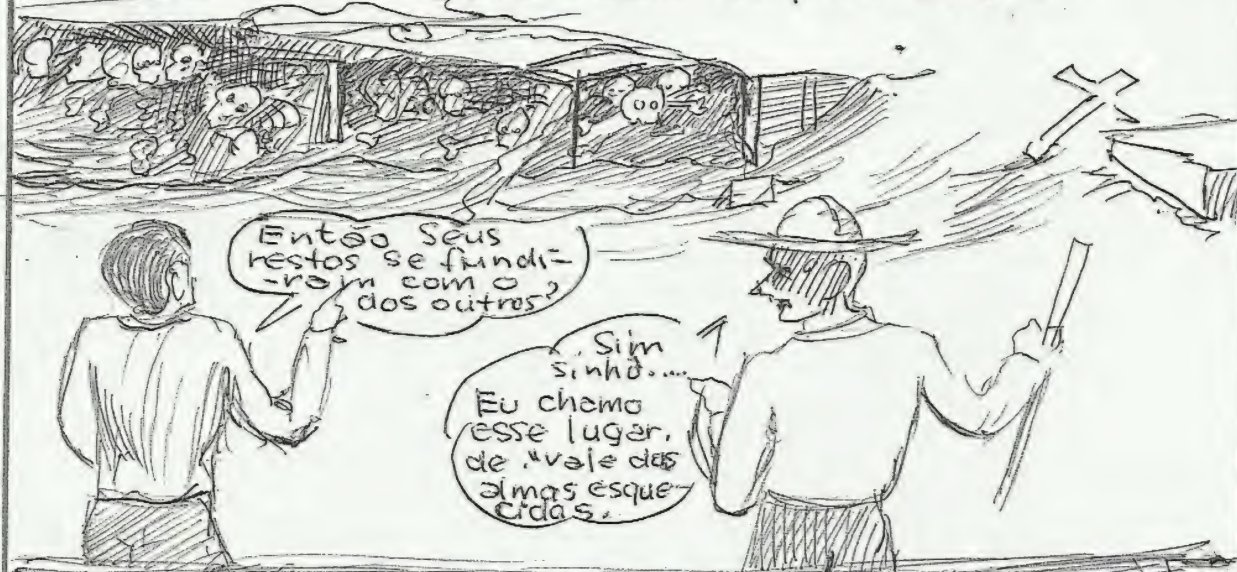 Então Seus
restos se fundi-
-ram com o
dos outros?
Sim
sinhô....
Eu chamo
esse lugar.
de "vale das
almas esque-
cidas.